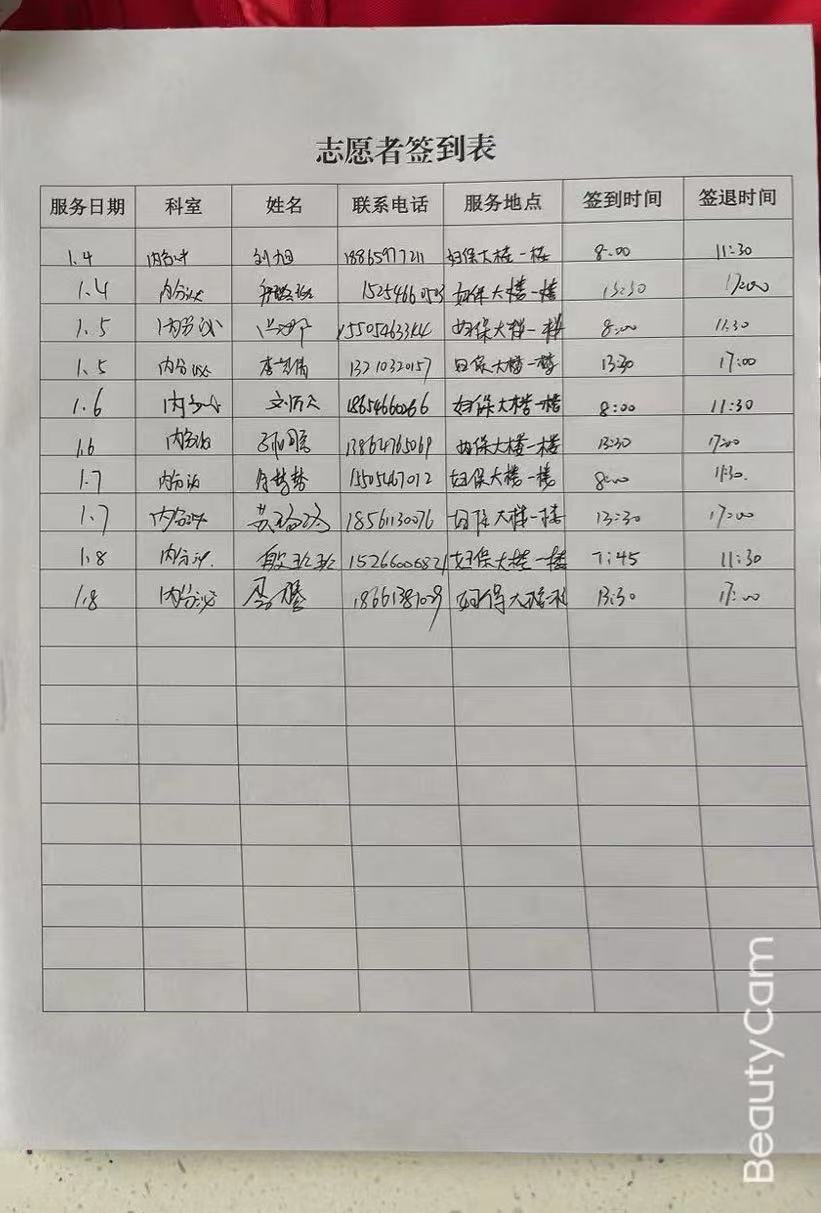 志愿者签到表
服务日期 科室 姓名 联系电话 服务地点 签到时间 签退时间
1.4 内分泌 刘旭 18865977211 妇保大楼一楼 8:00 11:30
1.4 内分泌 妇保大楼一楼 13:30 17:00
1.5 内分泌 15505463344 妇保大楼一楼 8:00 11:30
1.5 内分泌 13210320157 妇保大楼一楼 13:30 17:00
1.6 内分泌 18654660266 妇保大楼一楼 8:00 11:30
1.6 内分泌 13864765069 妇保大楼一楼 13:30 17:00
1.7 内分泌 15505467012 妇保大楼一楼 8:00 11:30.
1.7 内分泌 18561130076 妇保大楼一楼 13:30 17:00
1.8 内分泌. 殷班班 15266006821 妇保大楼一楼 7:45 11:30
1.8 内分泌 18661381029 妇保大楼 13:30 17:00
BeautyCam